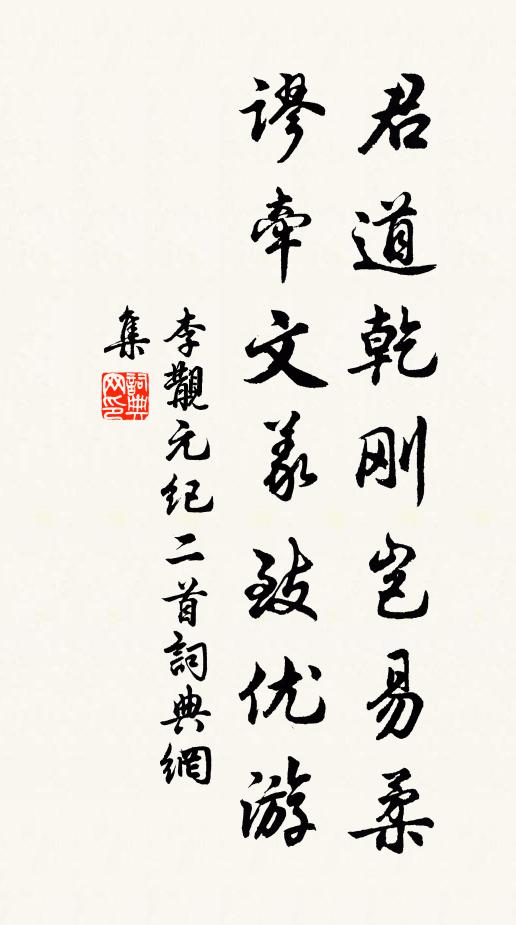 君道乾刚岂易柔
谬牵文義致优游
李覯元纪二首詞典網
集
詞典
网印